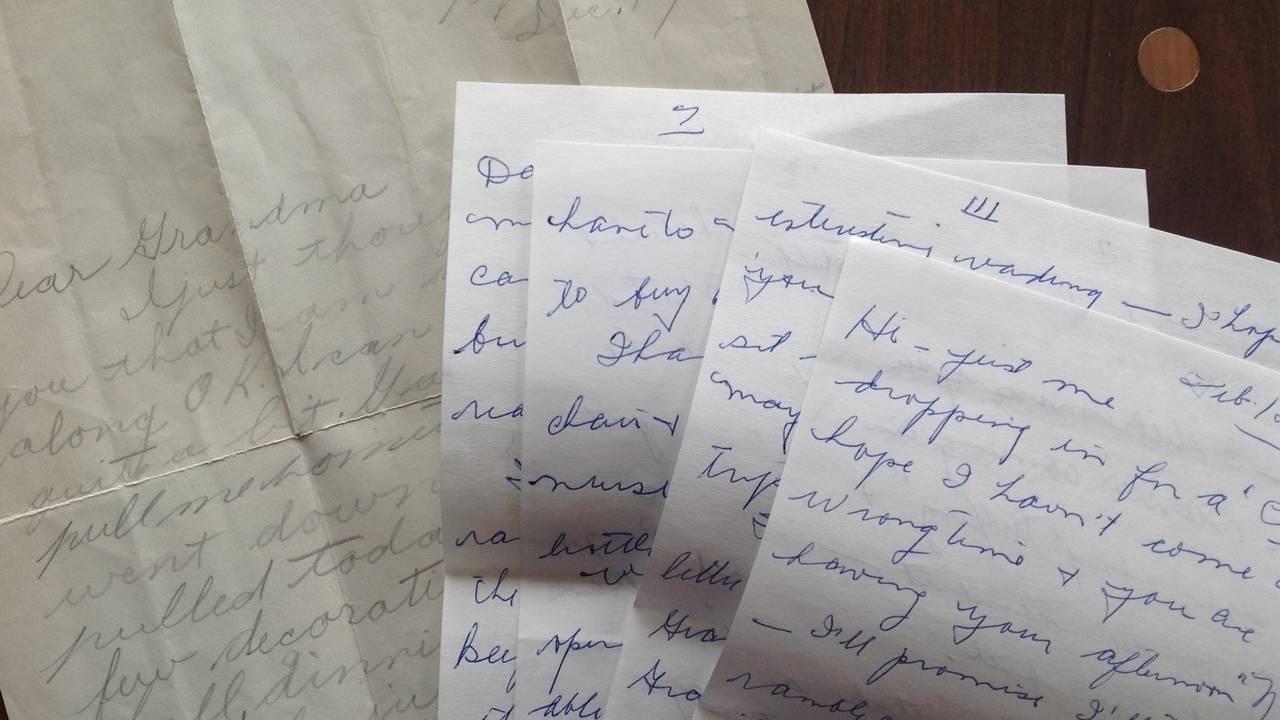 Dec. 17
Dear Grandma
I just thoug
you that I am
along O.K. I can
quite a bit. Ga
pull me home
went down
pulled toda
few decorati
all dinni
2
De
can
bu
rea
ra
the
bee
it
have to
to buy
I ha
chair +
nurse
little
w
open
able
III
esteresting reading — I hop
you
sit -
may
typ
letter
Gra
Gra
Feb. 1
Hi - just me
dropping in for a "C
hope I havn't come
wrong time + you are
having your afternoon "N
— I'll promise I'll
ramble